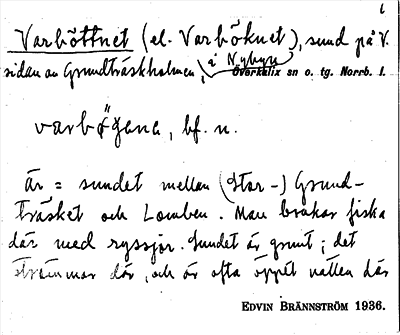 Varböttnet (el. Varböknet), sund på V.
sidan av Grundträskholmen, i Nybyn
Överkalix sn o. tg. Norrb. l.
bf. n.
är = sundet mellan (Stor-) Grund-
träsket och Lomben. Man brukar fiska
där med ryssjor. Sundet är grunt; det
strömmar där, och är ofta öppet vatten där
EDVIN BRÄNNSTRÖM 1936.